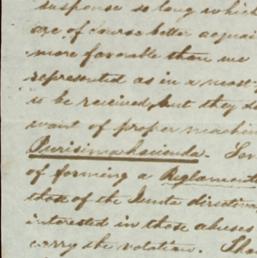 suspense so long which
are of course better acquai
more favorable than we
represented as in a most
to be received, but they de
want of proper machin
Purisima hacienda. Sev
of forming a Reglament
those of the Junta directiv
interested in those abuses
carry the votation. Tha